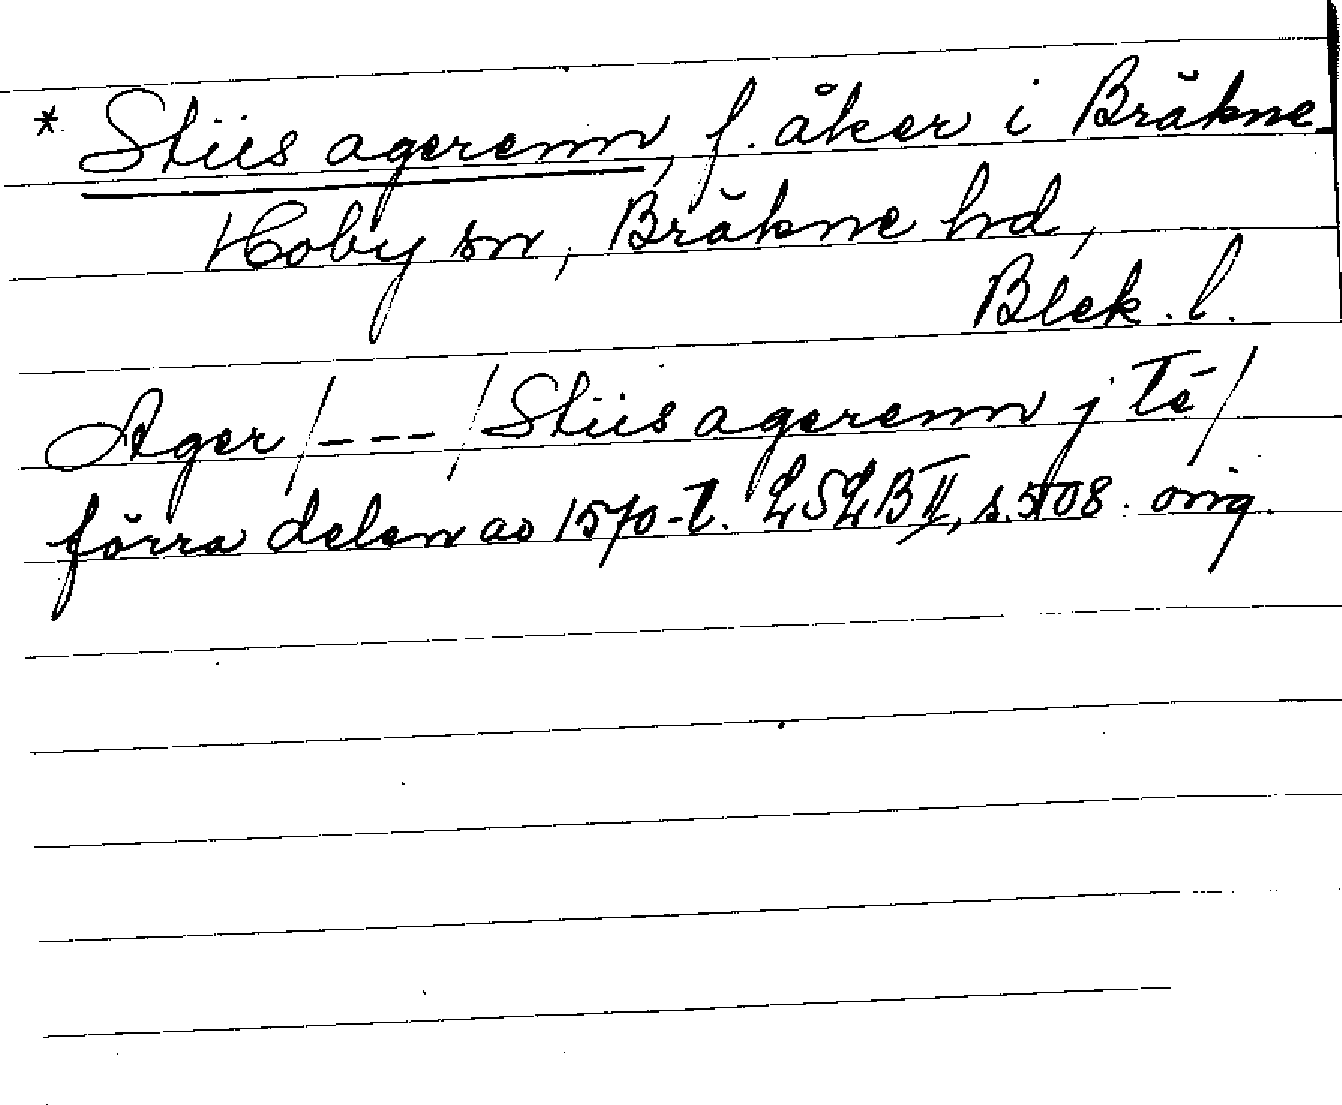 * Stiis agerenn, f. åker i Bräkne
Hoby sn, Bräkne hd,
Blek. l.
Ager /---/ Stiis agerenn j Tē/
förra delen av 1570-t. LSLB II, s. 508. orig.